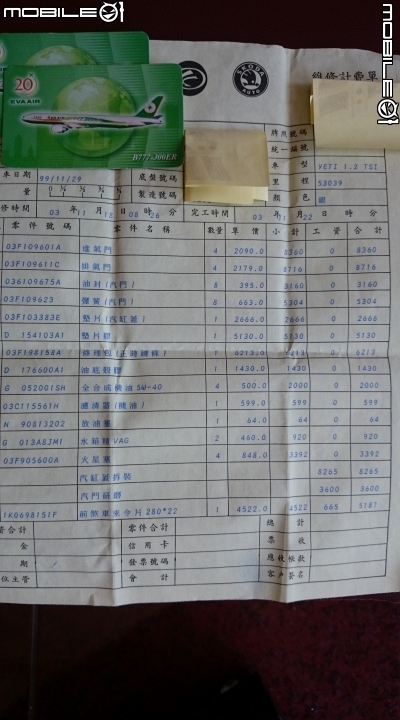 MOBILE01
MOBILE01
20
EVA AIR
B777-300ER
SKODA
AUTO
維修計費單
牌照號碼
統一編號
車日期 99/11/29 底盤號碼 車型 YETI 1.2 TSI
量 製造號碼 里程 53039
顏色 銀
修時間 03月11日18時06分 完工時間 03月11日22時分
零件號碼 零件名稱 數量 單價 小計 工資 合計
03F109601A 進氣門 4 2090.0 8360 0 8360
03F109611C 排氣門 4 2179.0 8716 0 8716
036109675A 油封(汽門) 8 395.0 3160 0 3160
03F109623 彈簧(汽門) 8 663.0 5304 0 5304
03F103383E 墊片(汽缸蓋) 1 2666.0 2666 0 2666
D 154103A1 墊片膠 1 5130.0 5130 0 5130
03F198158A 修理包(正時鍊條) 1 6213.0 6213 0 6213
D 176600A1 油底殼膠 1 1430.0 1430 0 1430
G 052001SH 全合成機油 5W-40 4 500.0 2000 0 2000
03C115561H 濾清器(機油) 1 599.0 599 0 599
N 90813202 放油塞 1 64.0 64 0 64
G 013A8JM1 水箱精VAG 2 460.0 920 0 920
03F905600A 火星塞 4 848.0 3392 0 3392
汽缸蓋拆裝 8265 8265
汽門研磨 3600 3600
1K0698151F 前煞車來令片 280*22 1 4522.0 4522 665 5187
資合計 零件合計 總計
金 信用卡 票收
期 發票號碼 應收帳款
位主管 會計 客戶簽名